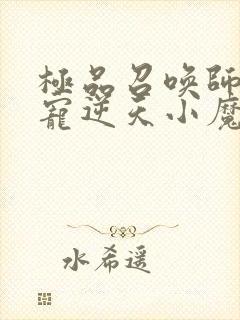 極品召喚師
寵逆天小魔
水希遥